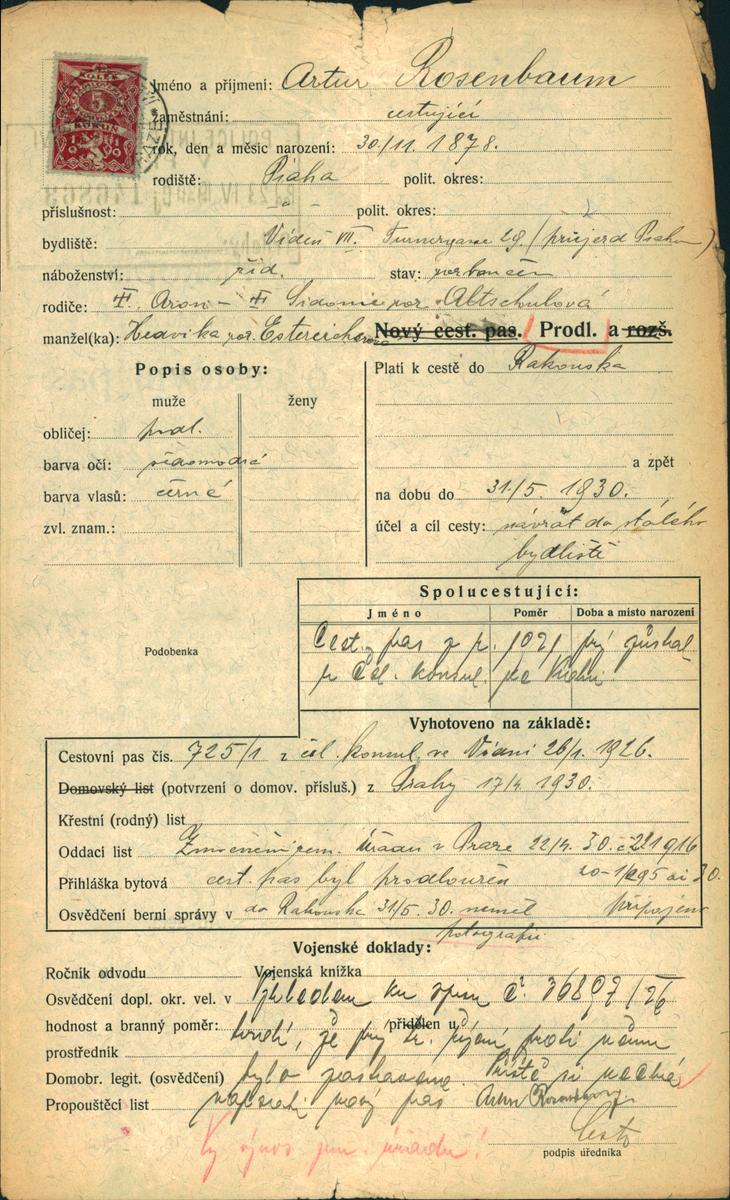 Jméno a příjmení: Artur Rosenbaum
zaměstnání: cestující
rok, den a měsic narození: 30/11. 1878.
rodiště: Praha polit. okres:
příslušnost: " polit. okres:
bydliště: Vídeň VII. Turnergasse 29. (přijezd Praha)
náboženství: žid. stav:
rodiče: Aron - Sidonie roz. Altschulová
manžel(ka): Hedvika roz. Nový cest. pas. Prodl. a rozš.
Popis osoby:
Platí k cestě do Rakouska
muže ženy
obličej: podl.
barva očí: šedomodré
a zpět
barva vlasů: černé
na dobu do 31/5. 1930.
zvl. znam.:
účel a cíl cesty: návrat do stálého
bydliště
Spolucestující:
Jméno Poměr Doba a misto narození
Cest. pas z r. 1921 prý zůstal
čsl. konsul. ve Vídni
Podobenka
Vyhotoveno na základě:
Cestovní pas čís. 725/1 z čsl. konsul. ve Vídni 26/1. 1926.
Domovský list (potvrzení o domov. přísluš.) z Prahy 17/4. 1930.
Křestní (rodný) list
Oddací list úřadu v Praze 22/4. 30.
Přihláška bytová cest. pas byl prodloužen
Osvědčení berní správy v do Rakouska 31/5. 30. neměl připojenu
fotografii
Vojenské doklady:
Ročník odvodu Vojenská knížka
Osvědčení dopl. okr. vel. v Vzhledem ku spisu č. 36897/26
hodnost a branný poměr: tvrdí, že prý tr. řízení proti němu
přidělen u
prostředník
Domobr. legit. (osvědčení) bylo zastaveno. Příště si nechá
Propouštěcí list nový pas Artur Rosenbaum
podpis úředníka